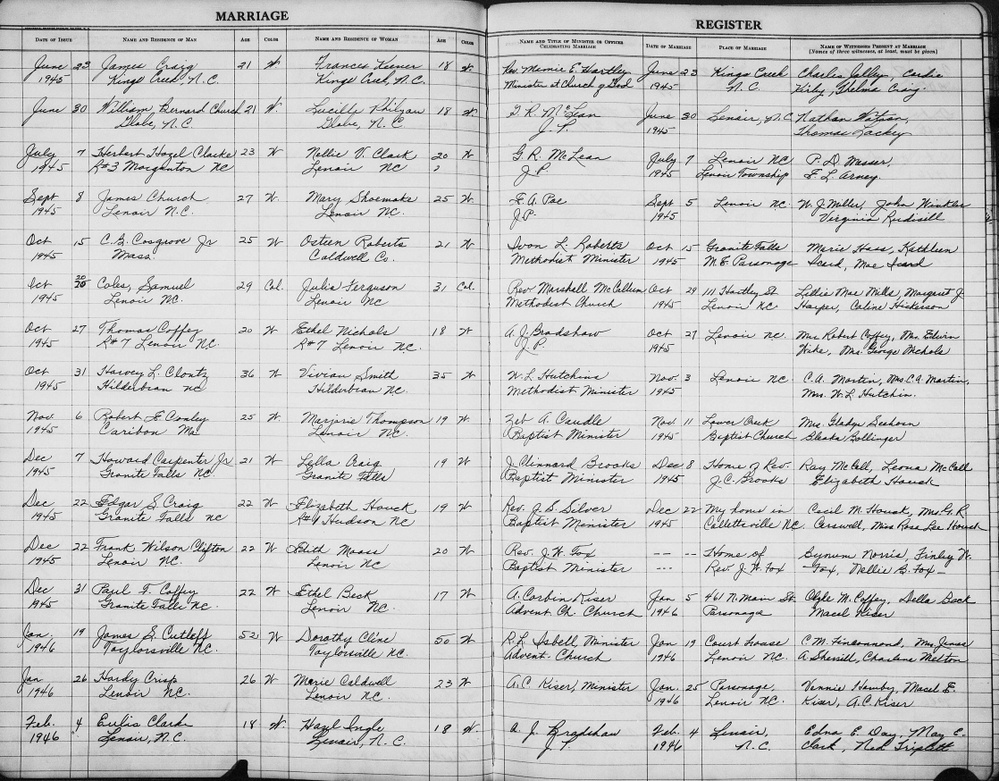 MARRIAGE
REGISTER
DATE OF ISSUE NAME AND RESIDENCE OF MAN AGE COLOR NAME AND RESIDENCE OF WOMAN AGE COLOR NAME AND TITLE OF MINISTER OR OFFICER CELEBRATING MARRIAGE DATE OF MARRIAGE PLACE OF MARRIAGE NAME OF WITNESSES PRESENT AT MARRIAGE
[Names of three witnesses, at least, must be given]
June 23 James Craig 21 W Frances 18 W Rev. Mamie E. Hartley June 23 Kings Creek Charles Jolley,
1945 Kings Creek, N.C. Kings Creek, N.C. Minister at Church of God 1945 N.C. Kirby, Thelma Craig
June 30 William Bernard Church 21 W Lucille 18 W G. R. McLean June 30 Lenoir, N.C. Nathan Watson,
1945 Globe, N.C. Globe, N.C. J.P. 1945 Thomas Lackey
July 7 Herbert Hazel Clarke 23 W Nellie V. Clark 20 W G R. McLean July 7 Lenoir NC P. D. Messer,
1945 R#3 Morganton NC Lenoir NC J.P. 1945 Lenoir Township F. L. Arney.
Sept 8 James Church 27 W Mary Shoemake 25 W F. A. Poe Sept 5 Lenoir NC. W. J. Miller, John Winkler
1945 Lenoir N.C. Lenoir NC. J.P. 1945 Virginia Rudisill
Oct 15 C. G. Cosgrove Jr 25 W Osteen Roberts 21 W Ivon L. Roberts Oct 15 Granite Falls Marie Hass, Kathleen
1945 Mass. Caldwell Co. Methodist Minister 1945 M.E. Parsonage Icard, Mae Icard
Oct 20 Coles, Samuel 29 Col. Julia Ferguson 31 Col. Rev Marshall McCallum Oct 29 111 Hartley St. Lillie Mae Mills, Margaret J.
1945 Lenoir NC. Lenoir NC Methodist Church 1945 Lenoir NC. Harper, Hickerson
Oct 27 Thomas Coffey 20 W Ethel Nichols 18 W A. J. Bradshaw Oct 27 Lenoir NC. Mrs Robert Coffey, Mrs Edwin
1945 R#7 Lenoir N.C. R#7 Lenoir N.C. J.P. 1945 Mrs. George Nichols
Oct 31 Harvey L. Clontz 36 W Vivian Smith 35 W W. L. Hutchins Nov. 3 Lenoir NC C.A. Martin, Mrs. C.A. Martin,
1945 Hildebran NC Hildebran NC. Methodist Minister 1945 Mrs. W. L. Hutchin.
Nov 6 Robert F. Conley 25 W Marjorie Thompson 19 W Zeb A. Caudle Nov 11 Lower Creek Mrs. Gladys
1945 Caribon Me. Lenoir NC. Baptist Minister 1945 Baptist Church Bollinger
Dec 7 Howard Carpenter Jr 21 W Lylla Craig 19 W J. Clinnard Brooks Dec 8 Home of Rev. Ray McCall, Leona McCall
1945 Granite Falls N.C. Granite Falls Baptist Minister 1945 J. C. Brooks Elizabeth Houck
Dec 22 Edgar S. Craig 22 W Elizabeth Houck 19 W Rev. J. D. Silver Dec 22 My home in Cecil M. Houck, Mrs. G. R.
1945 Granite Falls NC R#1 Hudson NC Baptist Minister 1945 Collettsville NC. Carswell, Miss Rosa Lee Houck
Dec 22 Frank Wilson Clifton 22 W Edith Moass 20 W Rev. J. W. Fox -- -- Home of Bynum Norris, Finley W.
1945 Lenoir NC. Lenoir NC Baptist Minister --- Rev. J. W. Fox Fox, Nellie B. Fox
Dec 31 Paul T. Coffey 22 W Ethel Beck 17 W A. Corbin Kiser Jan 5 461 N. Main St. Clyde M. Coffey, Della Beck
1945 Granite Falls NC. Lenoir NC. Advent Ch. Church 1946 Parsonage Macel Kiser
Jan. 19 James S. Cutleff 52 W Dorothy Cline 50 W R. L. Isbell Minister Jan 19 Court house C. M. Mrs. Jesse
1946 Taylorsville NC. Taylorsville NC. Advent Church 1946 Lenoir NC. A Sherrill, Charlene Melton
Jan 26 Hardy Crisp 26 W Marie Caldwell 23 W A. C. Kiser, Minister Jan. 25 Parsonage, Vennie Hamby, Macel E.
1946 Lenoir NC. Lenoir NC. 1946 Lenoir NC. Kiser, A.C. Kiser
Feb. 4 Eulis Clark 18 W. Hazel Ingle 18 W. A. J. Bradshaw Feb. 4 Lenoir, Edna E. Day, May E.
1946 Lenoir, N.C. Lenoir, N.C. J.P. 1946 N.C. Clark, Ned Triplett